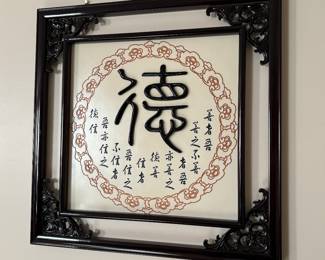 德
善者吾
善之不善
者吾
亦善之
德善
信者
吾信之
不信者
吾亦信之
德信